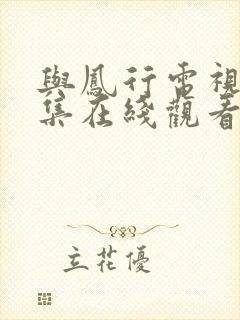 與鳳行電視
集在綫觀看
立花優